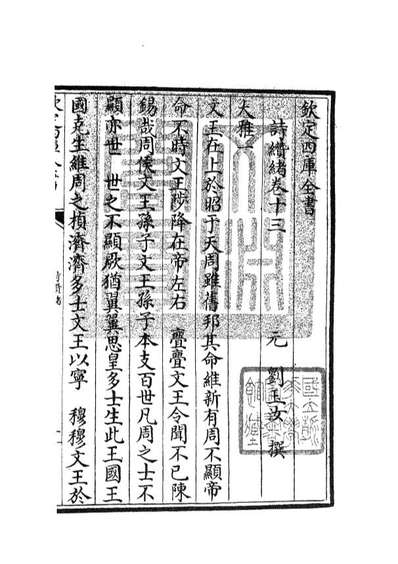 欽定四庫全書
詩纘緒卷十三
元 劉玉汝 撰
大雅一
文王在上於昭于天周雖舊邦其命維新有周不顯帝
命不時文王陟降在帝左右 亹亹文王令聞不已陳
錫哉周侯文王孫子文王孫子本支百世凡周之士不
顯亦世 世之不顯厥猶翼翼思皇多士生此王國王
國克生維周之楨濟濟多士文王以寧 穆穆文王於